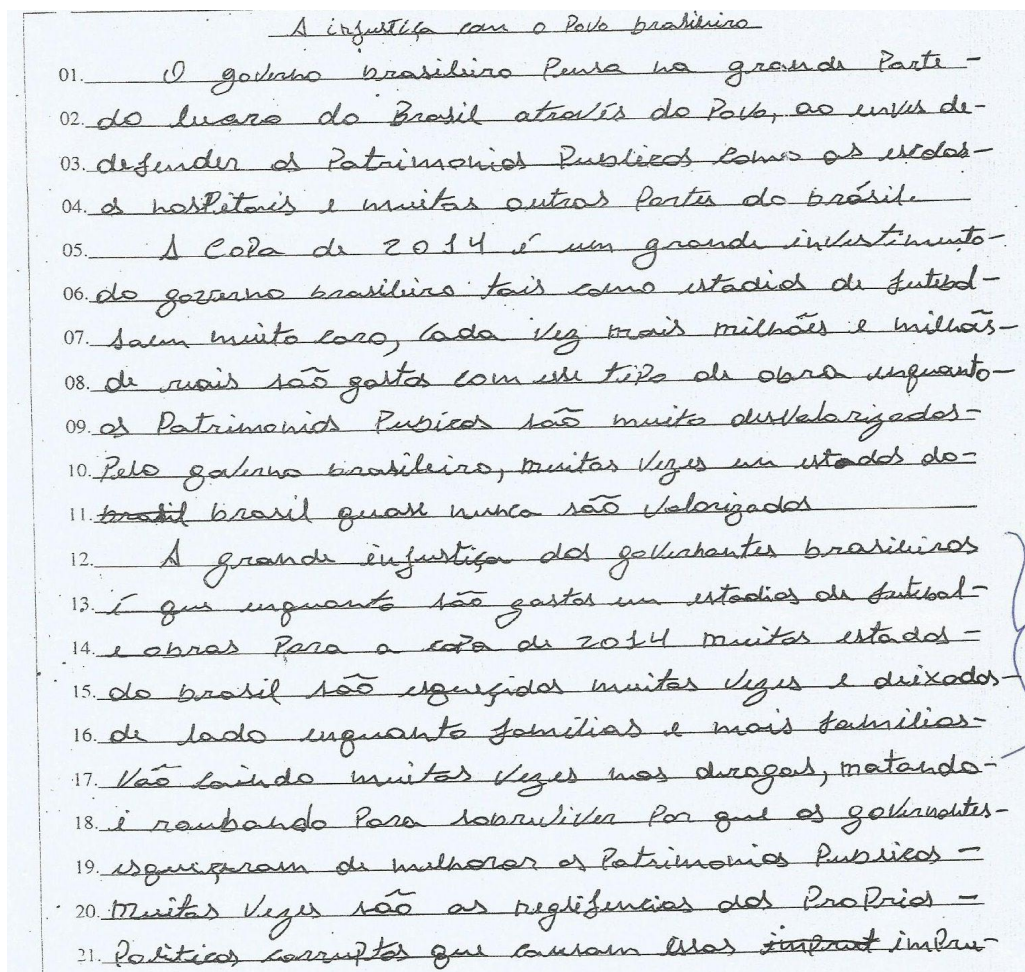 A injustiça com o Povo brasileiro
01. O governo brasileiro Pensa na grande Parte -
02. do lucro do Brasil através do Povo, ao enves de-
03. defender os Patrimonios Publicos como as escolas-
04. os hosPitais e muitas outras Partes do brásil.
05. A CoPa de 2014 é um grande investimento-
06. do governo brasileiro tais como estadios de futebol-
07. saem muito caro, Cada Vez mais milhões e milhões-
08. de reais são gastos com esse tiPo de obra enquanto-
09. os Patrimonios Pubicos são muito desValorizados-
10. Pelo governo brasileiro, muitas Vezes em estados do-
11. brasil brasil quase nunca são Valorizados
12. A grande enjustiça dos governantes brasileiros
13. é que enquanto são gastos em estadios de futebol-
14. e obras Para a coPa de 2014 muitos estados -
15. do brasil são esqueçidos muitas Vezes e deixados-
16. de lado enquanto famílias e mais famílias-
17. Vão caindo muitas Vezes nas drogas, matando-
18. é roubando Para sobreviver Por que os governantes-
19. esqueçeram de melhorar os Patrimonios Publicos -
20. Muitas Vezes são as neglifencias dos ProPrios -
21. Politicos corruPtos que causam essas impru-